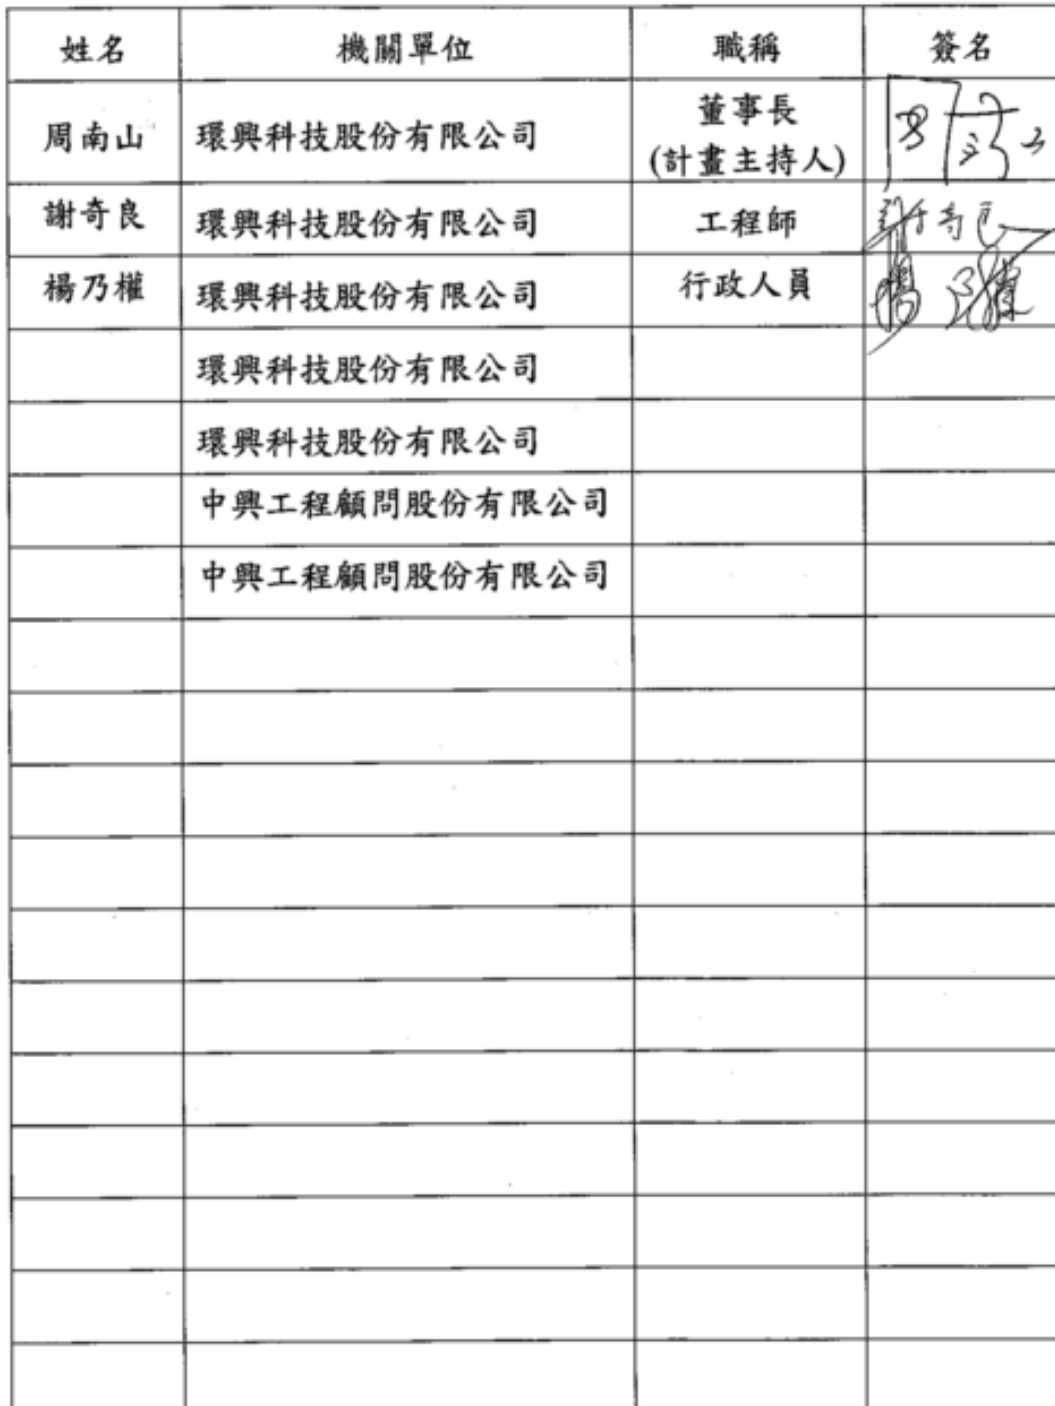 姓名 機關單位 職稱 簽名
周南山 環興科技股份有限公司 董事長
(計畫主持人)
謝奇良 環興科技股份有限公司 工程師
楊乃權 環興科技股份有限公司 行政人員
環興科技股份有限公司
環興科技股份有限公司
中興工程顧問股份有限公司
中興工程顧問股份有限公司